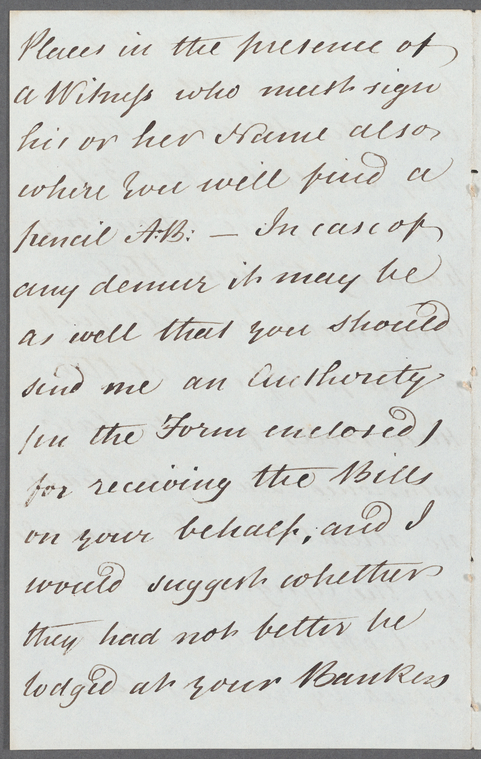 Places in the presence of
a Witness who must sign
his or her Name also
where you will find a
pencil A:B: — In case of
any demur it may be
as well that you should
send me an Authority
(in the Form enclosed)
for receiving the Bills
on your behalf, and I
would suggest whether
they had not better be
lodged at your Bankers